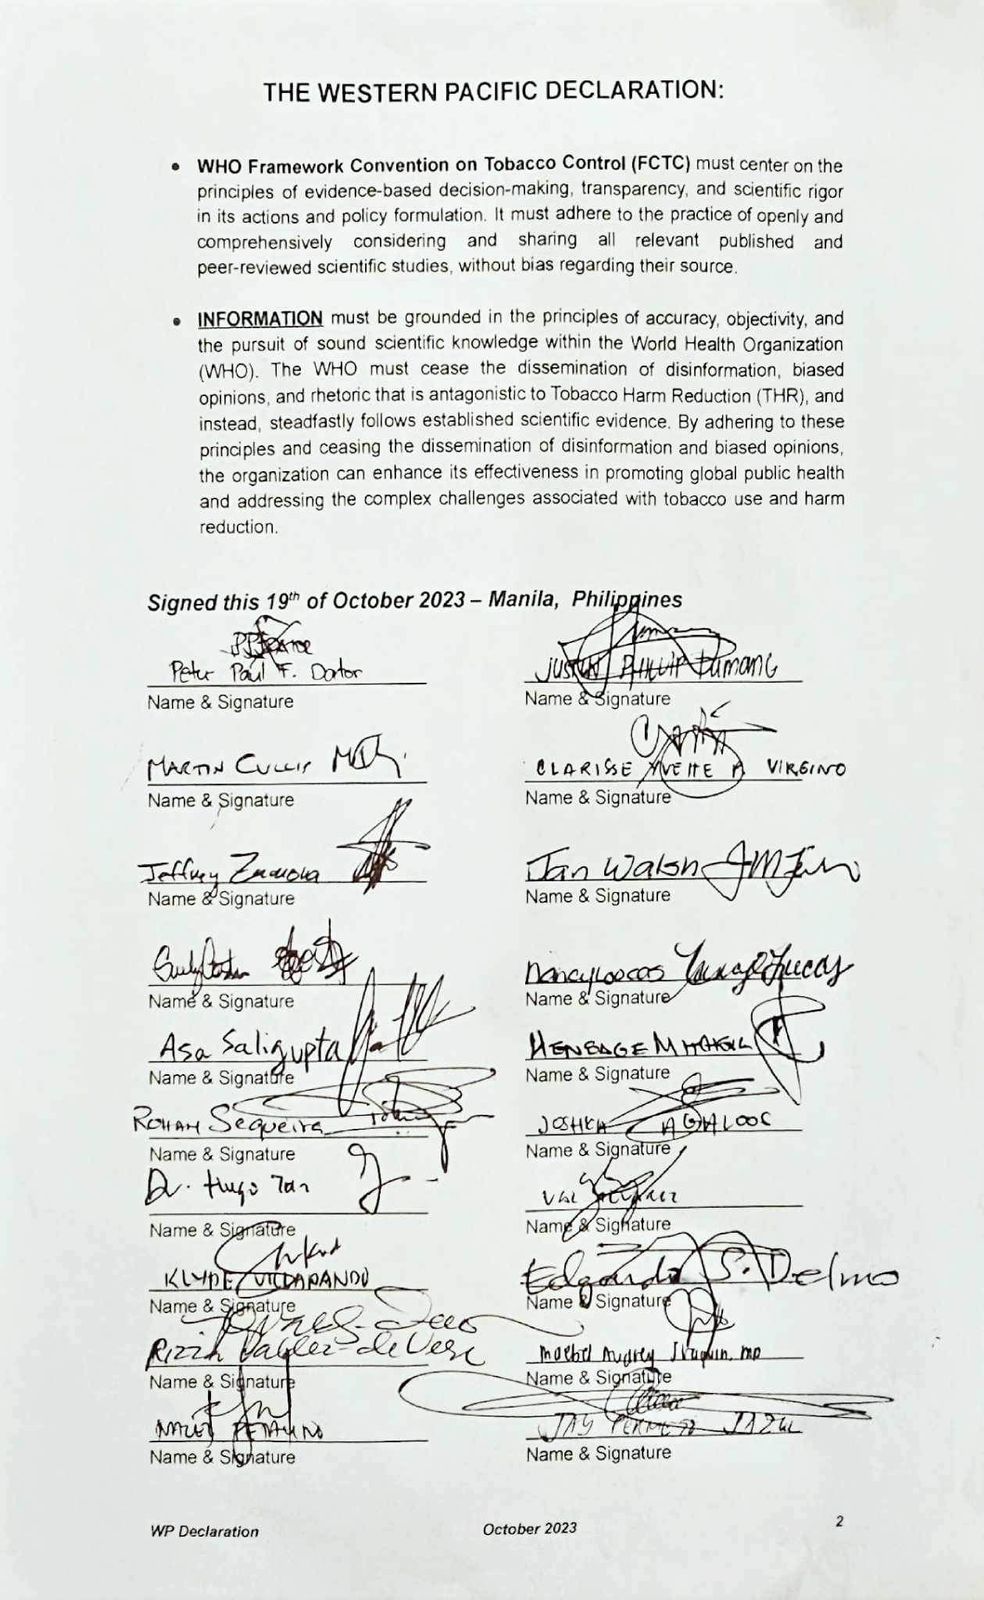 THE WESTERN PACIFIC DECLARATION:
• WHO Framework Convention on Tobacco Control (FCTC) must center on the
principles of evidence-based decision-making, transparency, and scientific rigor
in its actions and policy formulation. It must adhere to the practice of openly and
comprehensively considering and sharing all relevant published and
peer-reviewed scientific studies, without bias regarding their source.
• INFORMATION must be grounded in the principles of accuracy, objectivity, and
the pursuit of sound scientific knowledge within the World Health Organization
(WHO). The WHO must cease the dissemination of disinformation, biased
opinions, and rhetoric that is antagonistic to Tobacco Harm Reduction (THR), and
instead, steadfastly follows established scientific evidence. By adhering to these
principles and ceasing the dissemination of disinformation and biased opinions,
the organization can enhance its effectiveness in promoting global public health
and addressing the complex challenges associated with tobacco use and harm
reduction.
Signed this 19th of October 2023 – Manila, Philippines
Peter Paul F. Dator
Name & Signature
JUSTIN PHILLIP DUMANG
Name & Signature
MARTIN CULLIP
Name & Signature
CLARISSE YVETTE A VIRGINO
Name & Signature
Jeffrey Zamora
Name & Signature
Jan Walsh
Name & Signature
Name & Signature
Nancy Loucas
Name & Signature
Asa Saligupta
Name & Signature
HENEAGE MITCHELL
Name & Signature
ROHAN Sequeira
Name & Signature
JOSHUA
Name & Signature
Dr. Hugo Tan
Name & Signature
VAL
Name & Signature
KLYDE
Name & Signature
Edgardo S. Delmo
Name & Signature
Name & Signature
MD
Name & Signature
Name & Signature
JAY JAZUL
Name & Signature
WP Declaration
October 2023
2